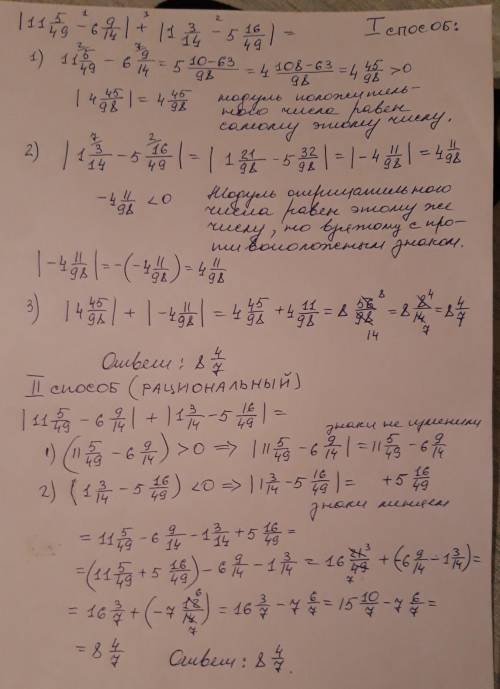 |11 5/49 - 6 9/14| + |1 3/14 - 5 16/49| = I способ:
1) 11 5/49 - 6 9/14 = 5 10-63/98 = 4 108-63/98 = 4 45/98 > 0
|4 45/98| = 4 45/98 модуль положительного числа равен самому этому числу.
2) |1 3/14 - 5 16/49| = |1 21/98 - 5 32/98| = |-4 11/98| = 4 11/98
-4 11/98 < 0 Модуль отрицательного
числа равен этому же
числу, но взятому с про-
тивоположным знаком.
|-4 11/98| = -(-4 11/98) = 4 11/98
3) |4 45/98| + |-4 11/98| = 4 45/98 + 4 11/98 = 8 56/98 = 8 8/14 = 8 4/7
Ответ: 8 4/7
II способ (РАЦИОНАЛЬНЫЙ)
|11 5/49 - 6 9/14| + |1 3/14 - 5 16/49| =
знаки не
1) (11 5/49 - 6 9/14) > 0 => |11 5/49 - 6 9/14| = 11 5/49 - 6 9/14
2) (1 3/14 - 5 16/49) < 0 => |1 3/14 - 5 16/49| = +5 16/49
знаки меняем
= 11 5/49 - 6 9/14 - 1 3/14 + 5 16/49 =
= (11 5/49 + 5 16/49) - 6 9/14 - 1 3/14 = 16 21/49 + (-6 9/14 - 1 3/14) =
= 16 3/7 + (-7 12/14) = 16 3/7 - 7 6/7 = 15 10/7 - 7 6/7 =
= 8 4/7 Ответ: 8 4/7.